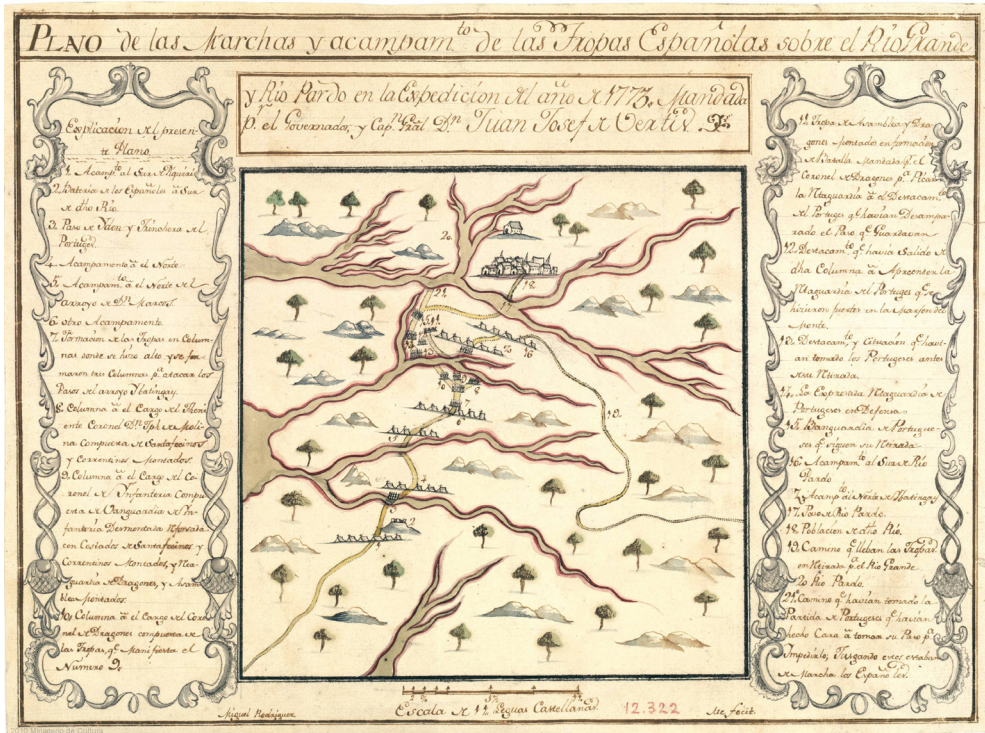 PLANO de las Marchas y acampam.to de las Tropas Españolas sobre el Rio Grande
y Rio Pardo en la Expedicion del año de 1773. Mandada
p.r el Governador, y Cap.n Gral D.n Juan Josef de Vertiz.
Explicacion del presen-
te Plano.
1. Acamp.to al Sur de Piquiri
2. Bateria de los Españoles â Sur
de dho Rio.
3. Paso de Yden y Trinchera del
Portugez.
4. Acampamento â el Norte
5. Acampam.to â el Norte de el
Arroyo de D.n Marcos.
6 otro Acampamento.
7. Formacion de las Tropas en Colum-
nas donde se hizo alto, y se for-
maron tres Columnas p.a atacar los
Pasos del arroyo Ytatingay.
8. Columna â el Cargo del Theni-
ente Coronel D.n Jph de Moli-
na Compuesta de Santafecinos
y Correntinos Montados.
9. Columna â el Cargo del Co-
ronel de Ynfanteria Compu-
esta de Vanguardia de Yn-
fanteria Desmontada Reforsada
con Costados de Santafecinos y
Correntinos Montados, y Rta-
guardia de Dragones, y Asam-
blea Montados.
10. Columna â el Cargo del Coro-
nel de Dragones compuesta de
las Tropas, q.e Manifiesta el
Número 9.
11. Tropa de Asamblea y Dra-
gones Montados en formacion
de Batalla Mandada p.r el
Coronel de Dragones p.a Picar
la Rtaguardia â el Destacam.to
del Portuges q.e havian Desampa-
rado el Paso q.e Guardavan
12. Destacam.to q.e havia Salido de
dha Columna â Aprecentar la
Rtaguardia del Portuges q.e se
hizieron fuertes en la Marjen del
Monte.
13. Destacam.to y Cituacion q.e havi-
an tomado los Portugeses antes
de su Retirada.
14. La Expresada Rtaguardia de
Portugeses en Defensa
15. Banguardia de Portuge-
ses q.e siguen su Retirada
16. Acampam.to al Sur de Rio
Pardo
Acamp.to del Norte de Ytatingay
17. Paso de Rio Pardo.
18. Poblacion de dho Rio.
19. Camino q.e lleban las Tropas
en Retirada p.a el Rio Grande
20 Rio Pardo.
21. Camino q.e havian tomado la
Partida de Portugeses q.e havian
hecho Cara â tomar su Paso p.a
Impedirlo; Jusgando estos estaba
de Marcha los Españoles.
20.
21.
18
17
15
16
19.
10
9
8
7
6
5
4
3
2
1
Miguel Rodriguez
Escala de 12 Leguas Castellanas.
12.322
Me fecit.
2010 Ministerio de Cultura